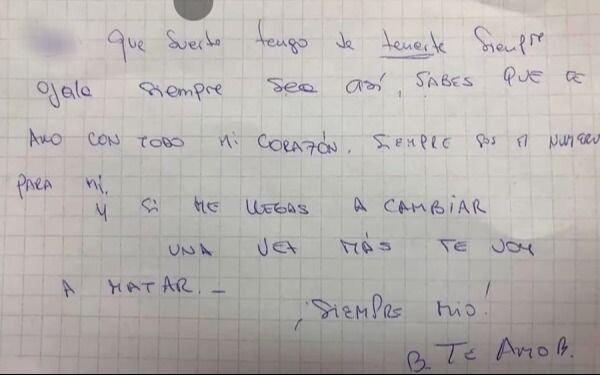 Que suerte tengo de tenerte siempre
ojala siempre sea así, SABES QUE TE
AMO CON TODO MI CORAZÓN. SIEMPRE SOS MI NUMERO
PARA MI.
Y SI ME LLEGAS A CAMBIAR
UNA VEZ MÁS TE VOY
A MATAR. –
¡SIEMPRE MIO!
B. TE AMO B.